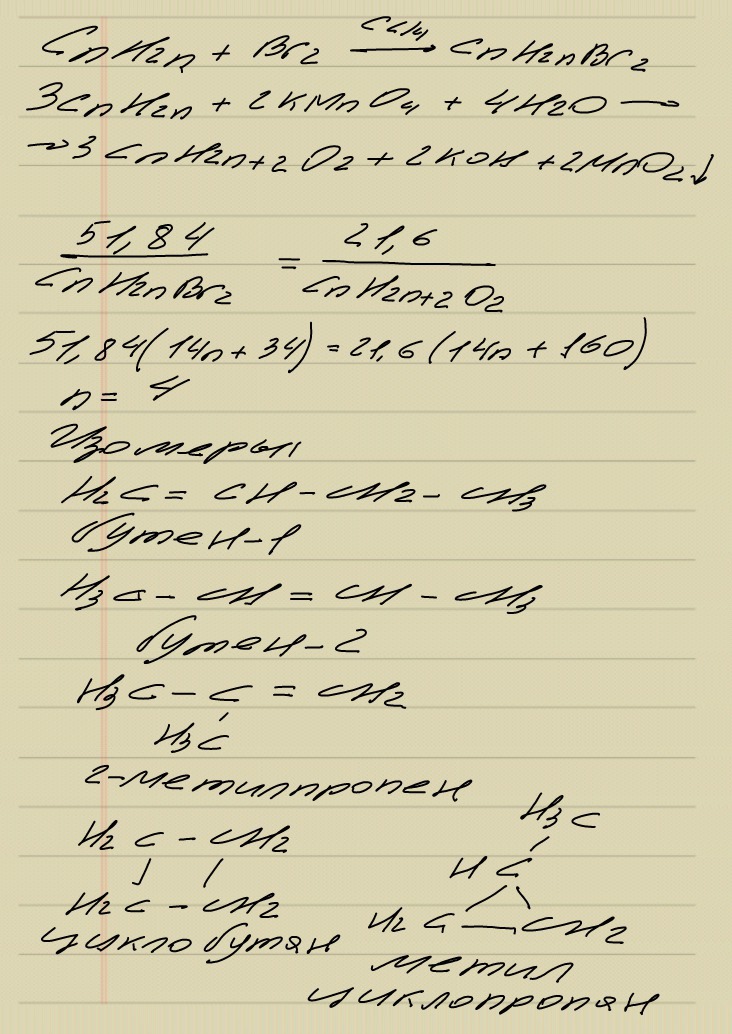 CCl4
CnH2n + Br2 → CnH2nBr2
3CnH2n + 2KMnO4 + 4H2O →
→ 3CnH2n+2O2 + 2KOH + 2MnO2↓
51,84 / CnH2nBr2 = 21,6 / CnH2n+2O2
51,84(14n + 34) = 21,6(14n + 160)
n = 4
Изомеры
H2C = CH - CH2 - CH3
бутен-1
H3C - CH = CH - CH3
бутен-2
H3C - C = CH2
H3C
2-метилпропен
H2C - CH2
H2C - CH2
циклобутан
H3C
HC
H2C — CH2
метил
циклопропан